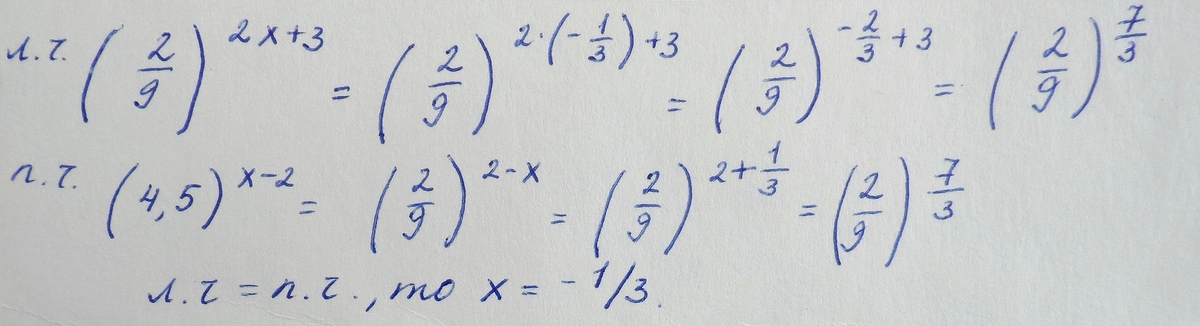 л.ч. (2/9)^(2x+3) = (2/9)^(2·(-1/3)+3) = (2/9)^(-2/3+3) = (2/9)^(7/3)
п.ч. (4,5)^(x-2) = (2/9)^(2-x) = (2/9)^(2+1/3) = (2/9)^(7/3)
л.ч = п.ч., то x = -1/3.